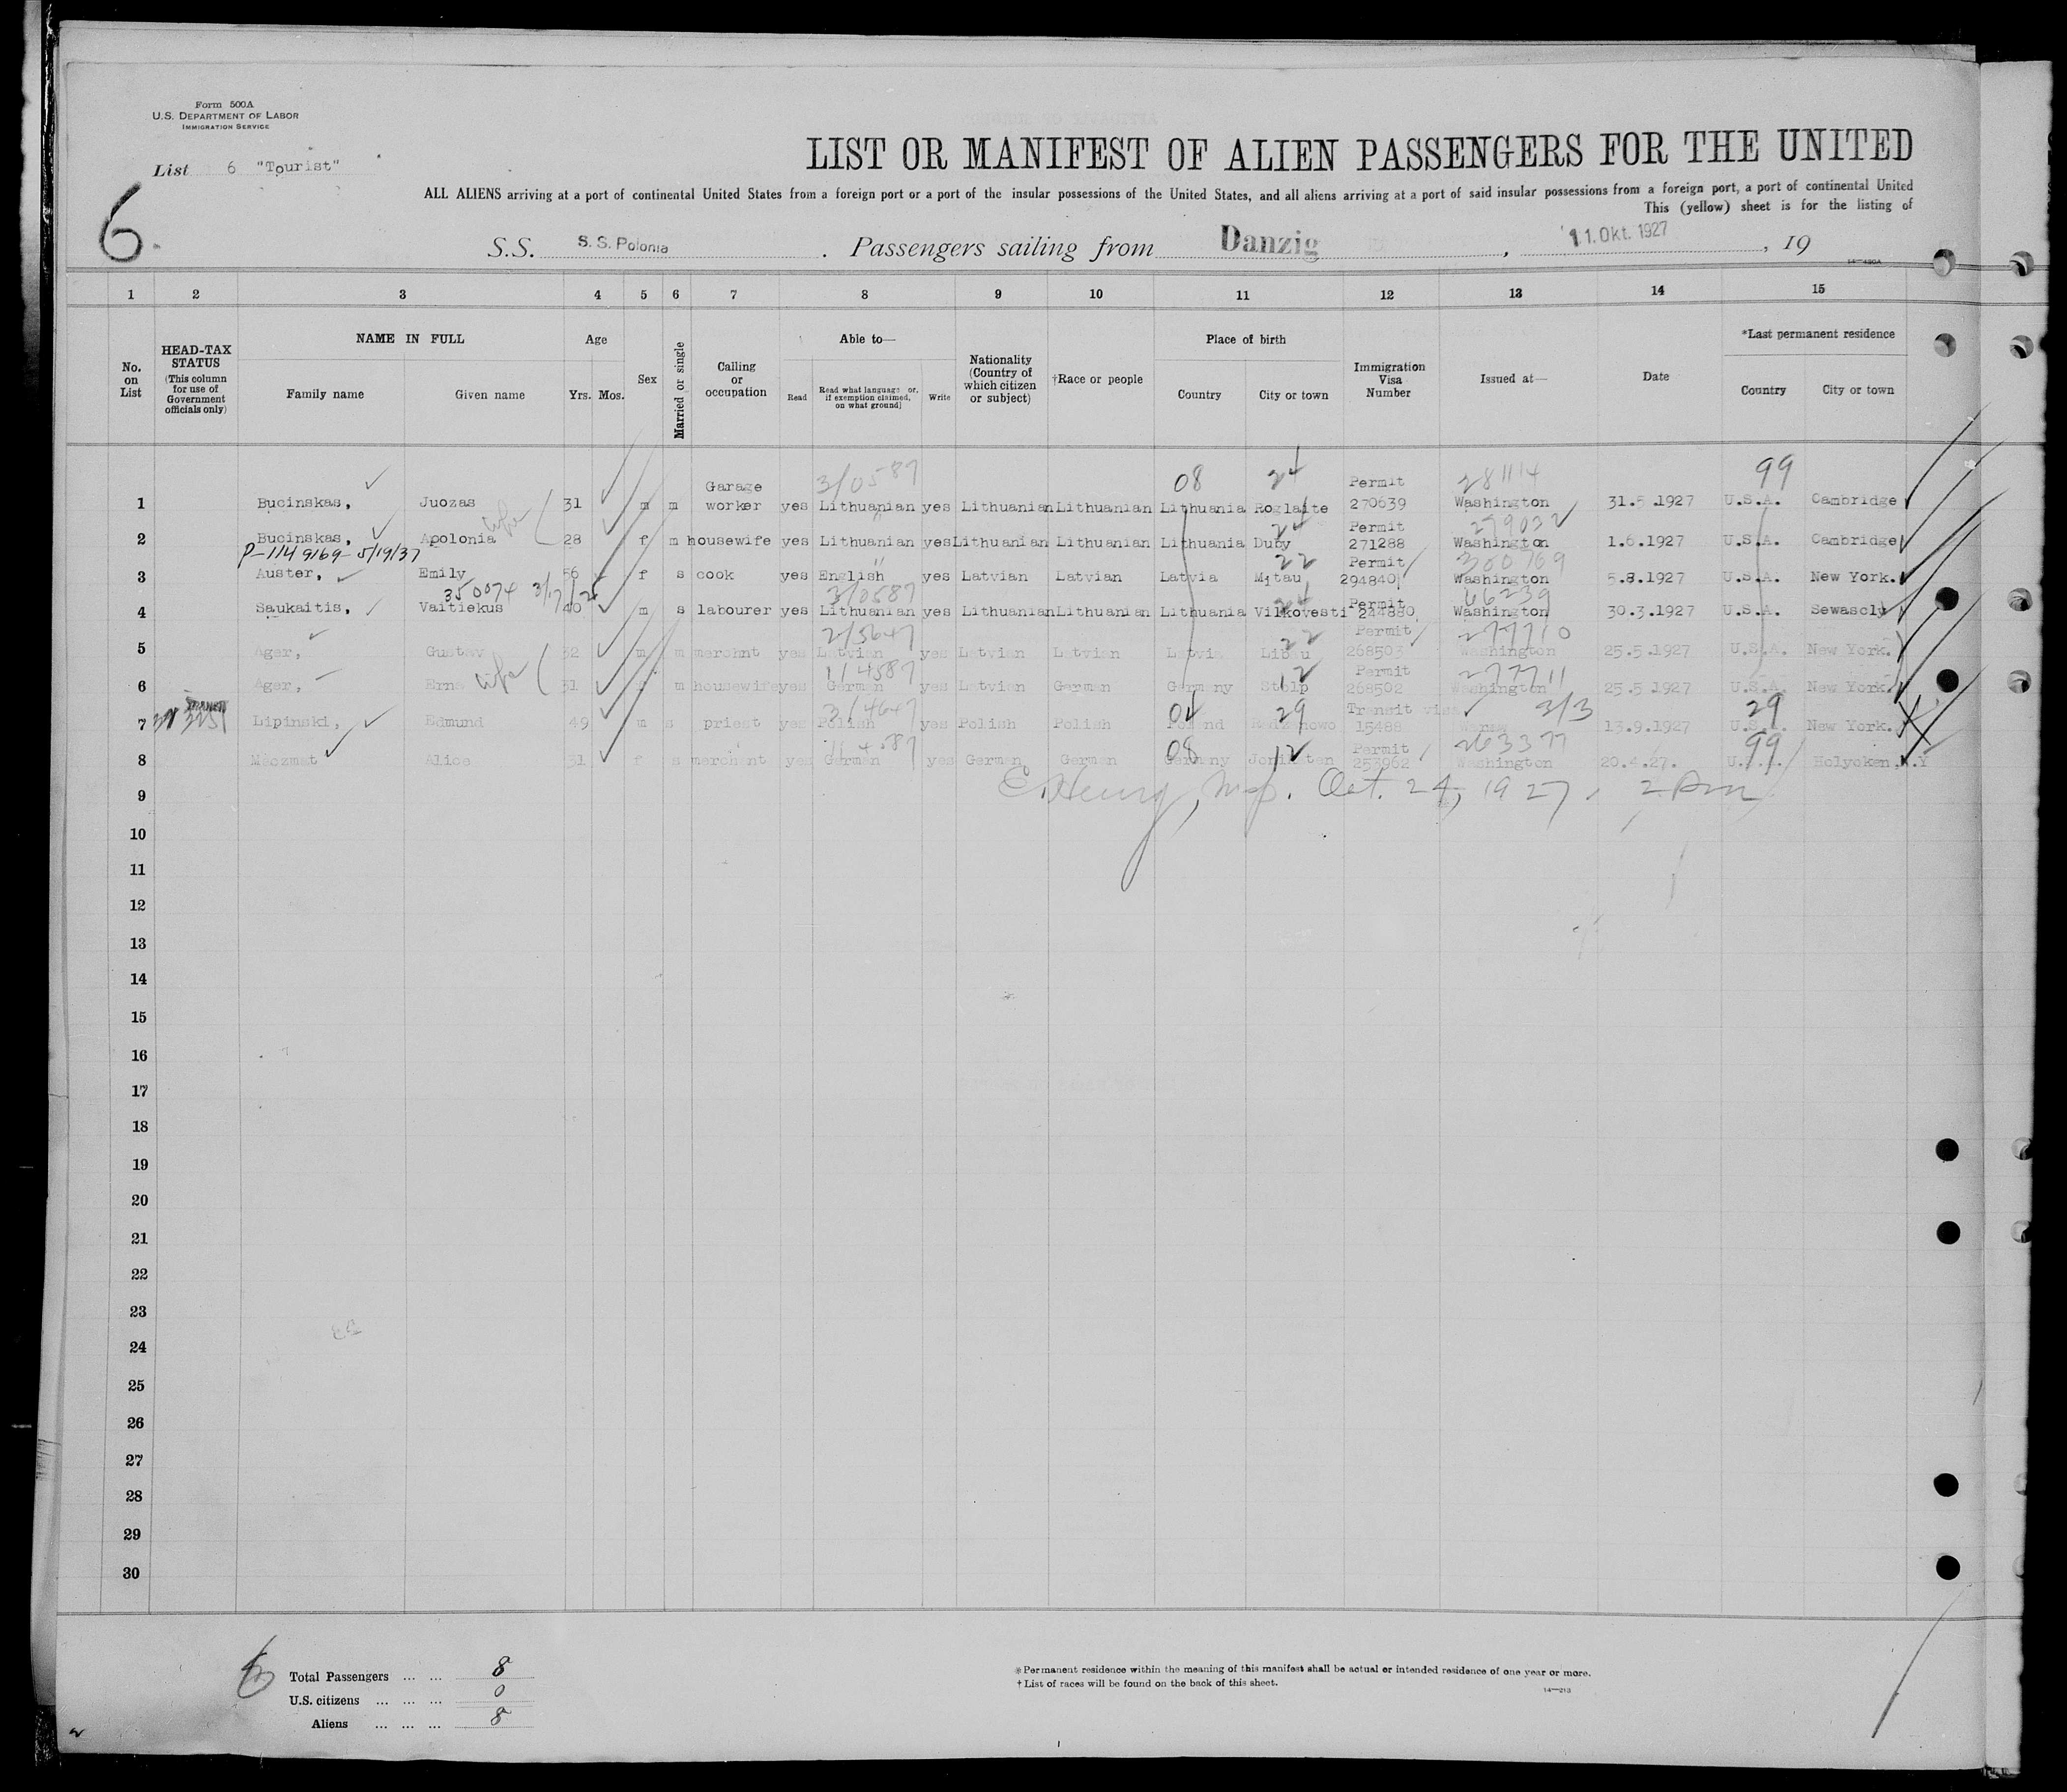 Form 500A
U.S. DEPARTMENT OF LABOR
IMMIGRATION SERVICE
List 6 "Tourist"
6
LIST OR MANIFEST OF ALIEN PASSENGERS FOR THE UNITED
ALL ALIENS arriving at a port of continental United States from a foreign port or a port of the insular possessions of the United States, and all aliens arriving at a port of said insular possessions from a foreign port, a port of continental United
This (yellow) sheet is for the listing of
S.S. S. S. Polonia . Passengers sailing from Danzig , 11.Okt. 1927 , 19
1 2 3 4 5 6 7 8 9 10 11 12 13 14 15
No. on List
HEAD-TAX STATUS (This column for use of Government officials only)
NAME IN FULL Family name Given name
Age Yrs. Mos.
Sex
Married or single
Calling or occupation
Able to— Read Read what language or, if exemption claimed, on what ground) Write
Nationality (Country of which citizen or subject)
†Race or people
Place of birth Country City or town
Immigration Visa Number
Issued at—
Date
*Last permanent residence Country City or town
Garage 3/0587 08 24 Permit 281114 99
1 Bucinskas, Juozas 31 m m worker yes Lithuanian yes Lithuanian Lithuanian Lithuania Roglaite 270639 Washington 31.5.1927 U.S.A. Cambridge
wife 24 Permit 279032
2 Bucinskas, Apolonia 28 f m housewife yes Lithuanian yes Lithuanian Lithuanian Lithuania Duby 271288 Washington 1.6.1927 U.S.A. Cambridge
P-114 9169- 5/19/37 22 Permit 300769
3 Auster, Emily 56 f s cook yes English yes Latvian Latvian Latvia Mitau 294840 Washington 5.8.1927 U.S.A. New York.
350074 3/0587 24 Permit 66239
4 Saukaitis, Vaitiekus 40 m s labourer yes Lithuanian yes Lithuanian Lithuanian Lithuania Vilkovesti 244880 Washington 30.3.1927 U.S.A. Sewascly
2/5647 22 Permit 277710
5 Ager, Gustav 32 m m merchnt yes Latvian yes Latvian Latvian Latvia Libau 268503 Washington 25.5.1927 U.S.A. New York.
wife 1/4587 12 Permit 277711
6 Ager, Erna 31 f m housewife yes German yes Latvian German Germany Stolp 268502 Washington 25.5.1927 U.S.A. New York.
3/4647 04 29 Transit visa 3/3 29
7 Lipinski, Edmund 49 m s priest yes Polish yes Polish Polish Poland 15488 13.9.1927 U.S.A. New York.
11 4587 08 12 Permit 263377 99
8 Maczmat Alice 31 f s merchant yes German yes German German Germany 253962 Washington 20.4.27. U.S.A. Holyoken, N.Y
9
Oct. 24, 1927, 2 Pm
10
11
12
13
14
15
16
17
18
19
20
21
22
23
24
25
26
27
28
29
30
Total Passengers ... ... 8
U.S. citizens ... ... ... 0
Aliens ... ... ... 8
* Permanent residence within the meaning of this manifest shall be actual or intended residence of one year or more.
† List of races will be found on the back of this sheet.
14—213